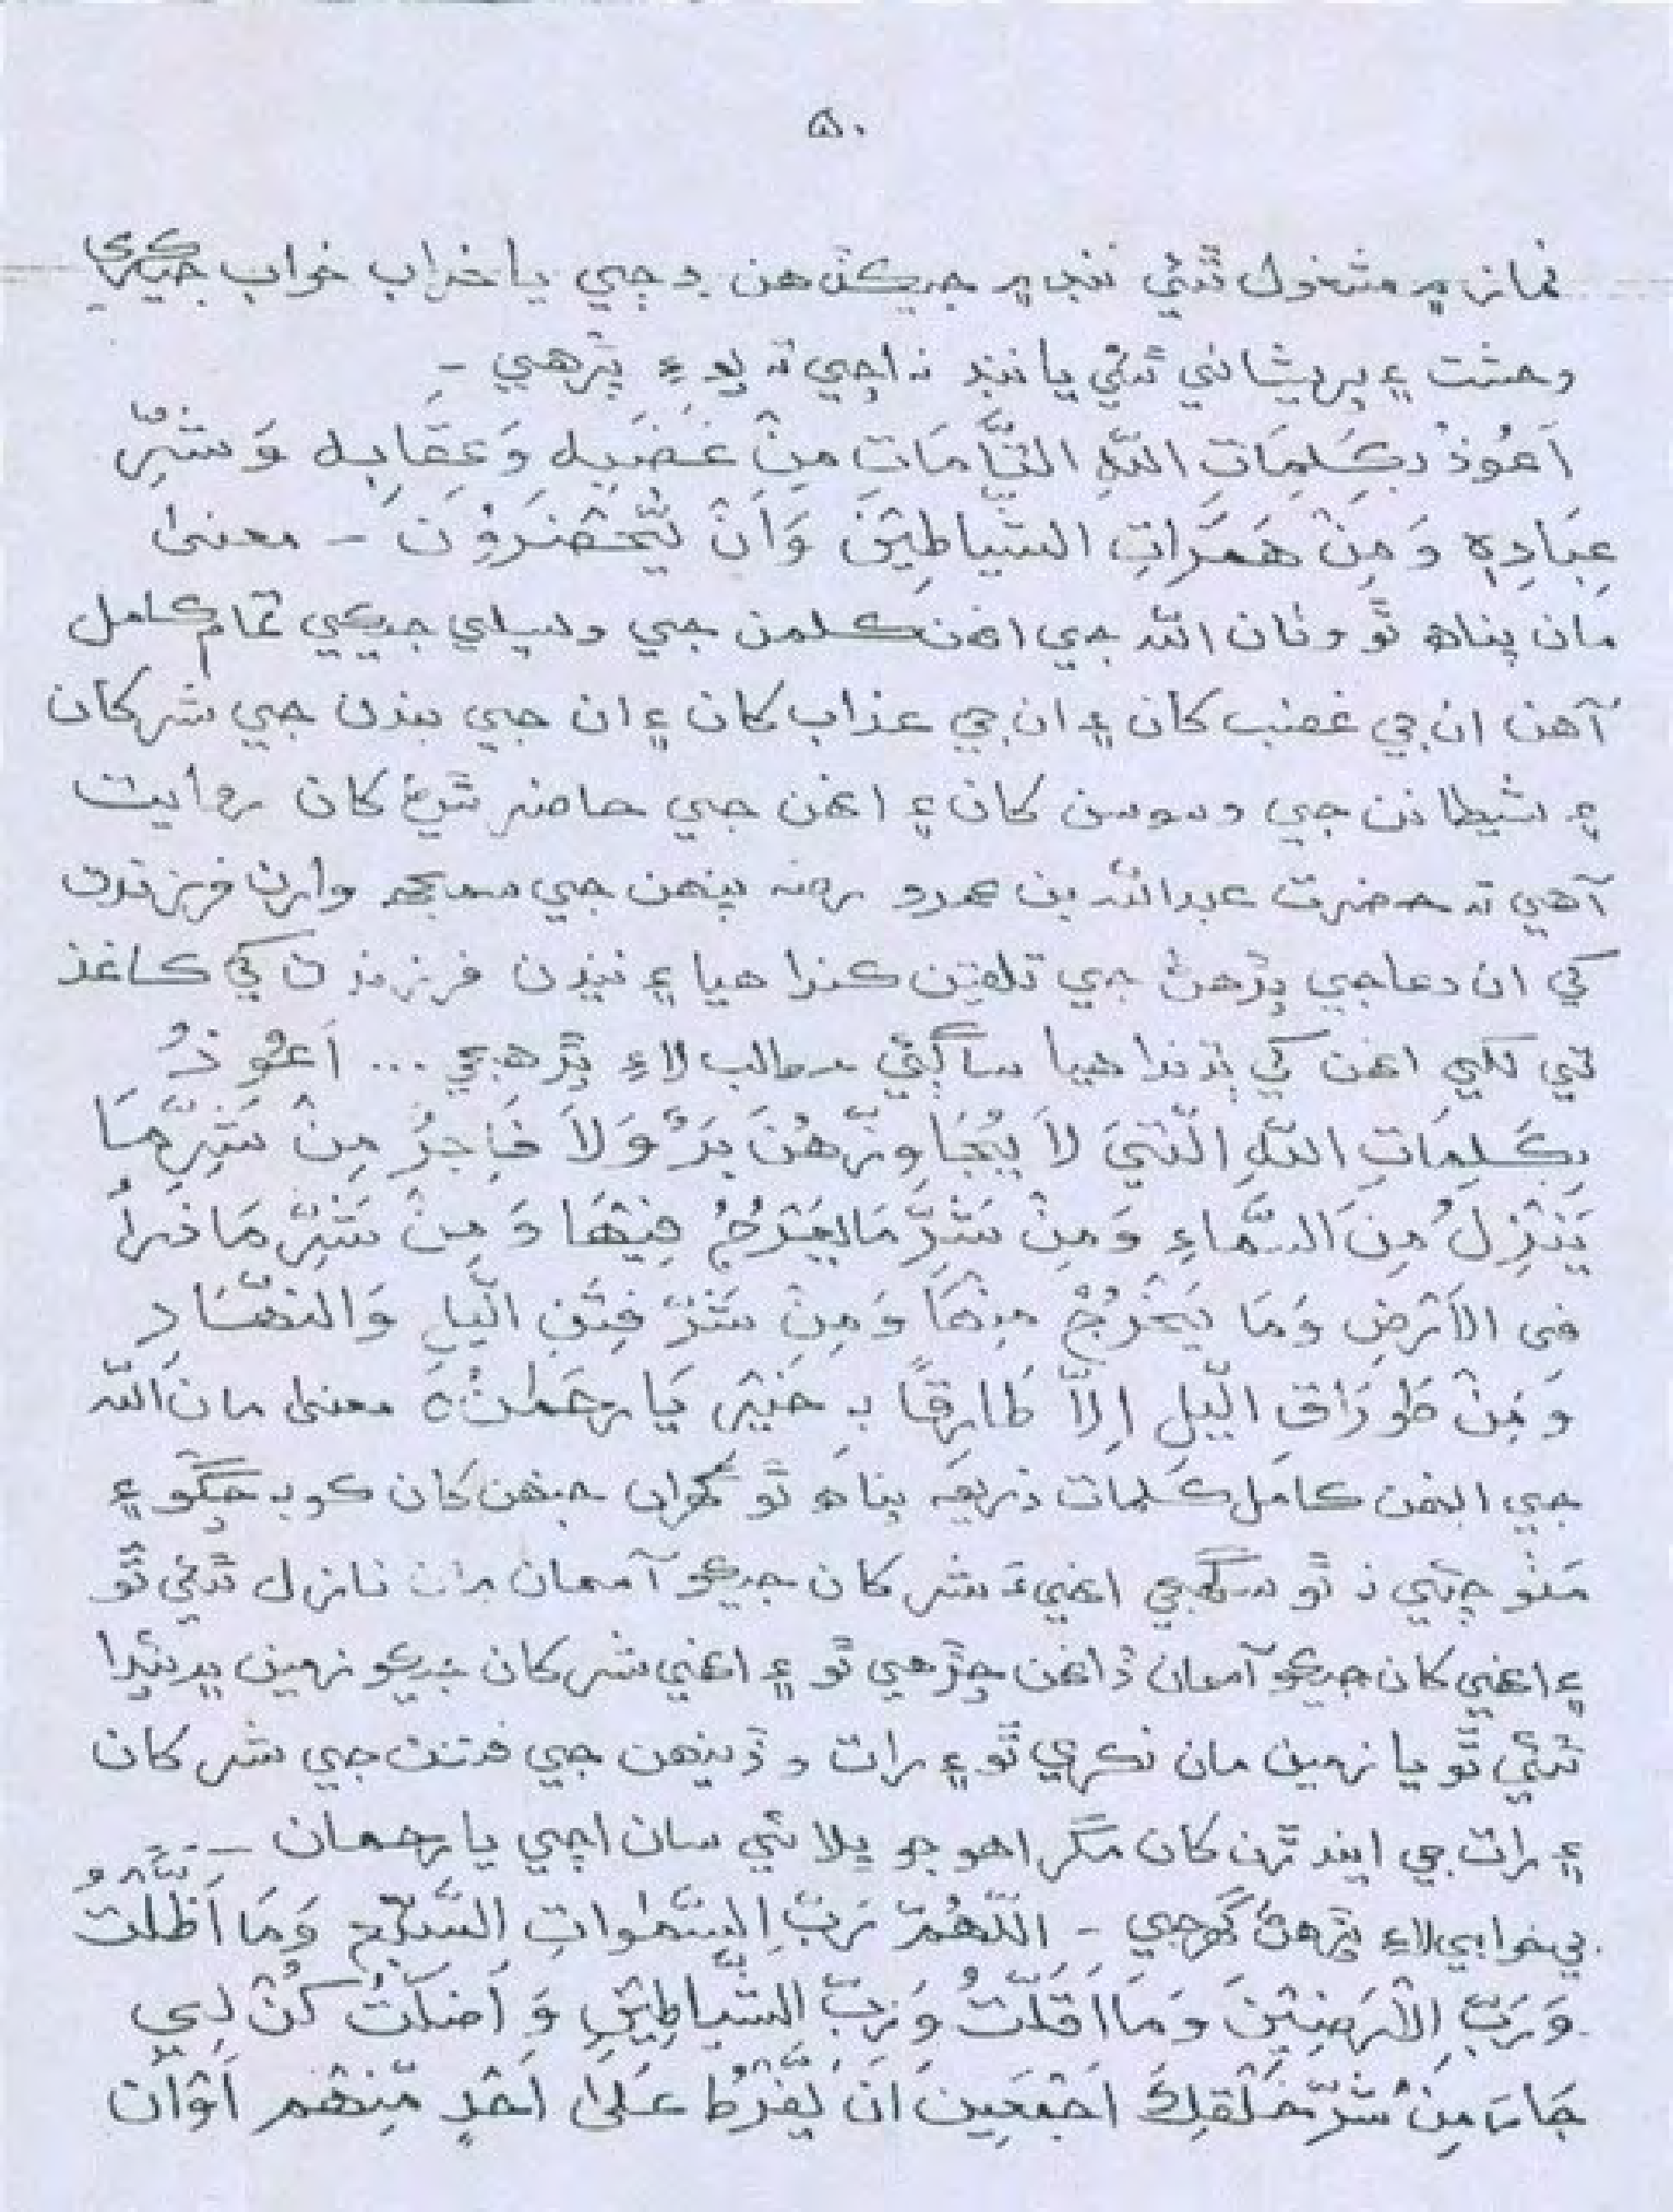 ۵۰
نماز ۾ مشغول ٿئي ننڊ ۾ جيڪڏهن ڊڄي يا خراب خواب جيڪري
وحشت ۽ پريشاني ٿئي يا ننڊ نه اچي ته پوءِ پڙهي -
اَعُوْذُ بِكَلِمَاتِ اللّٰهِ التَّآمَّاتِ مِنْ غَضَبِهٖ وَعِقَابِهٖ وَشَرِّ
عِبَادِهٖ وَ مِنْ هَمَزَاتِ الشَّيَاطِيْنَ وَاَنْ يَّحْضَرُوْنَ - معنيٰ
مان پناه ٿو وٺان الله جي انهن ڪلمن جي وسيلي جيڪي تمام ڪامل
آهن ان جي غضب کان ۽ ان جي عذاب کان ۽ ان جي ٻندن جي شر کان
۽ شيطانن جي وسوسن کان ۽ انهن جي حاضر ٿيڻ کان روايت
آهي ته حضرت عبدالله بن عمرو رضه پنهن جي سمجھ وارن فرزندن
کي ان دعا جي پڙهڻ جي تلقين ڪندا هيا ۽ ننڍن فرزندن کي ڪاغذ
تي لکي انهن کي ٻڌندا هيا ساڳئي مطالب لاءِ پڙهجي ... اَعُوْذُ
بِكَلِمَاتِ اللّٰهِ الَّتِيْ لاَ يُجَاوِزُهُنَّ بَرٌّ وَلاَ فَاجِرٌ مِنْ شَرِّ مَا
يَنْزِلُ مِنَ السَّمَاءِ وَمِنْ شَرِّ مَا يَعْرُجُ فِيْهَا وَ مِنْ شَرِّ مَا ذَرَاُ
فِی الاَرْضِ وَمَا يَخْرُجُ مِنْهَا وَمِنْ شَرِّ فِتَنِ الَّيلِ وَالنَّهَارِ
وَ مِنْ طَوَارَاقِ الَّيْلِ اِلَّا طَارِقًا بِ خَيْرٍ يَا رَحْمٰنُ ہ معنيٰ مان الله
جي انهن ڪامل ڪلمات ذريعہ پناه ٿو گھران جنهن کان ڪوبہ چڱو ۽
مٺو چئي نہ ٿو سگھجي انهي شر کان جيڪو آسمان مان نازل ٿئي ٿو
۽ انهي کان جيڪو آسمان ڏانهن چڙهي ٿو ۽ انهي شر کان جيڪو زمين ۾ پيدا
ٿئي ٿو يا زمين مان نڪري ٿو ۽ رات و ڏينهن جي فتنن جي شر کان
۽ رات جي ايندڙن کان مگر اهو جو ڀلائي سان اچي يا رحمان -
بي خوابي لاءِ پڙهڻ گھرجي - اَللّٰهُمَّ رَبَّ السَّمٰوَاتِ السَّبْعِ وَمَا اَظَلَّتْ
وَرَبَّ الْاَرَضِيْنَ وَمَا اَقَلَّتْ وَرَبَّ الشَّيَاطِيْنِ وَ اَضَلَّتْ كُنْ لِی
جَارَ مِنْ شَرِّ خَلْقِكَ اَجْمَعِيْنَ اَنْ يَّفْرُطَ عَلَیٰ اَحَدٍ مِّنْهُمْ اَوْ اَنْ